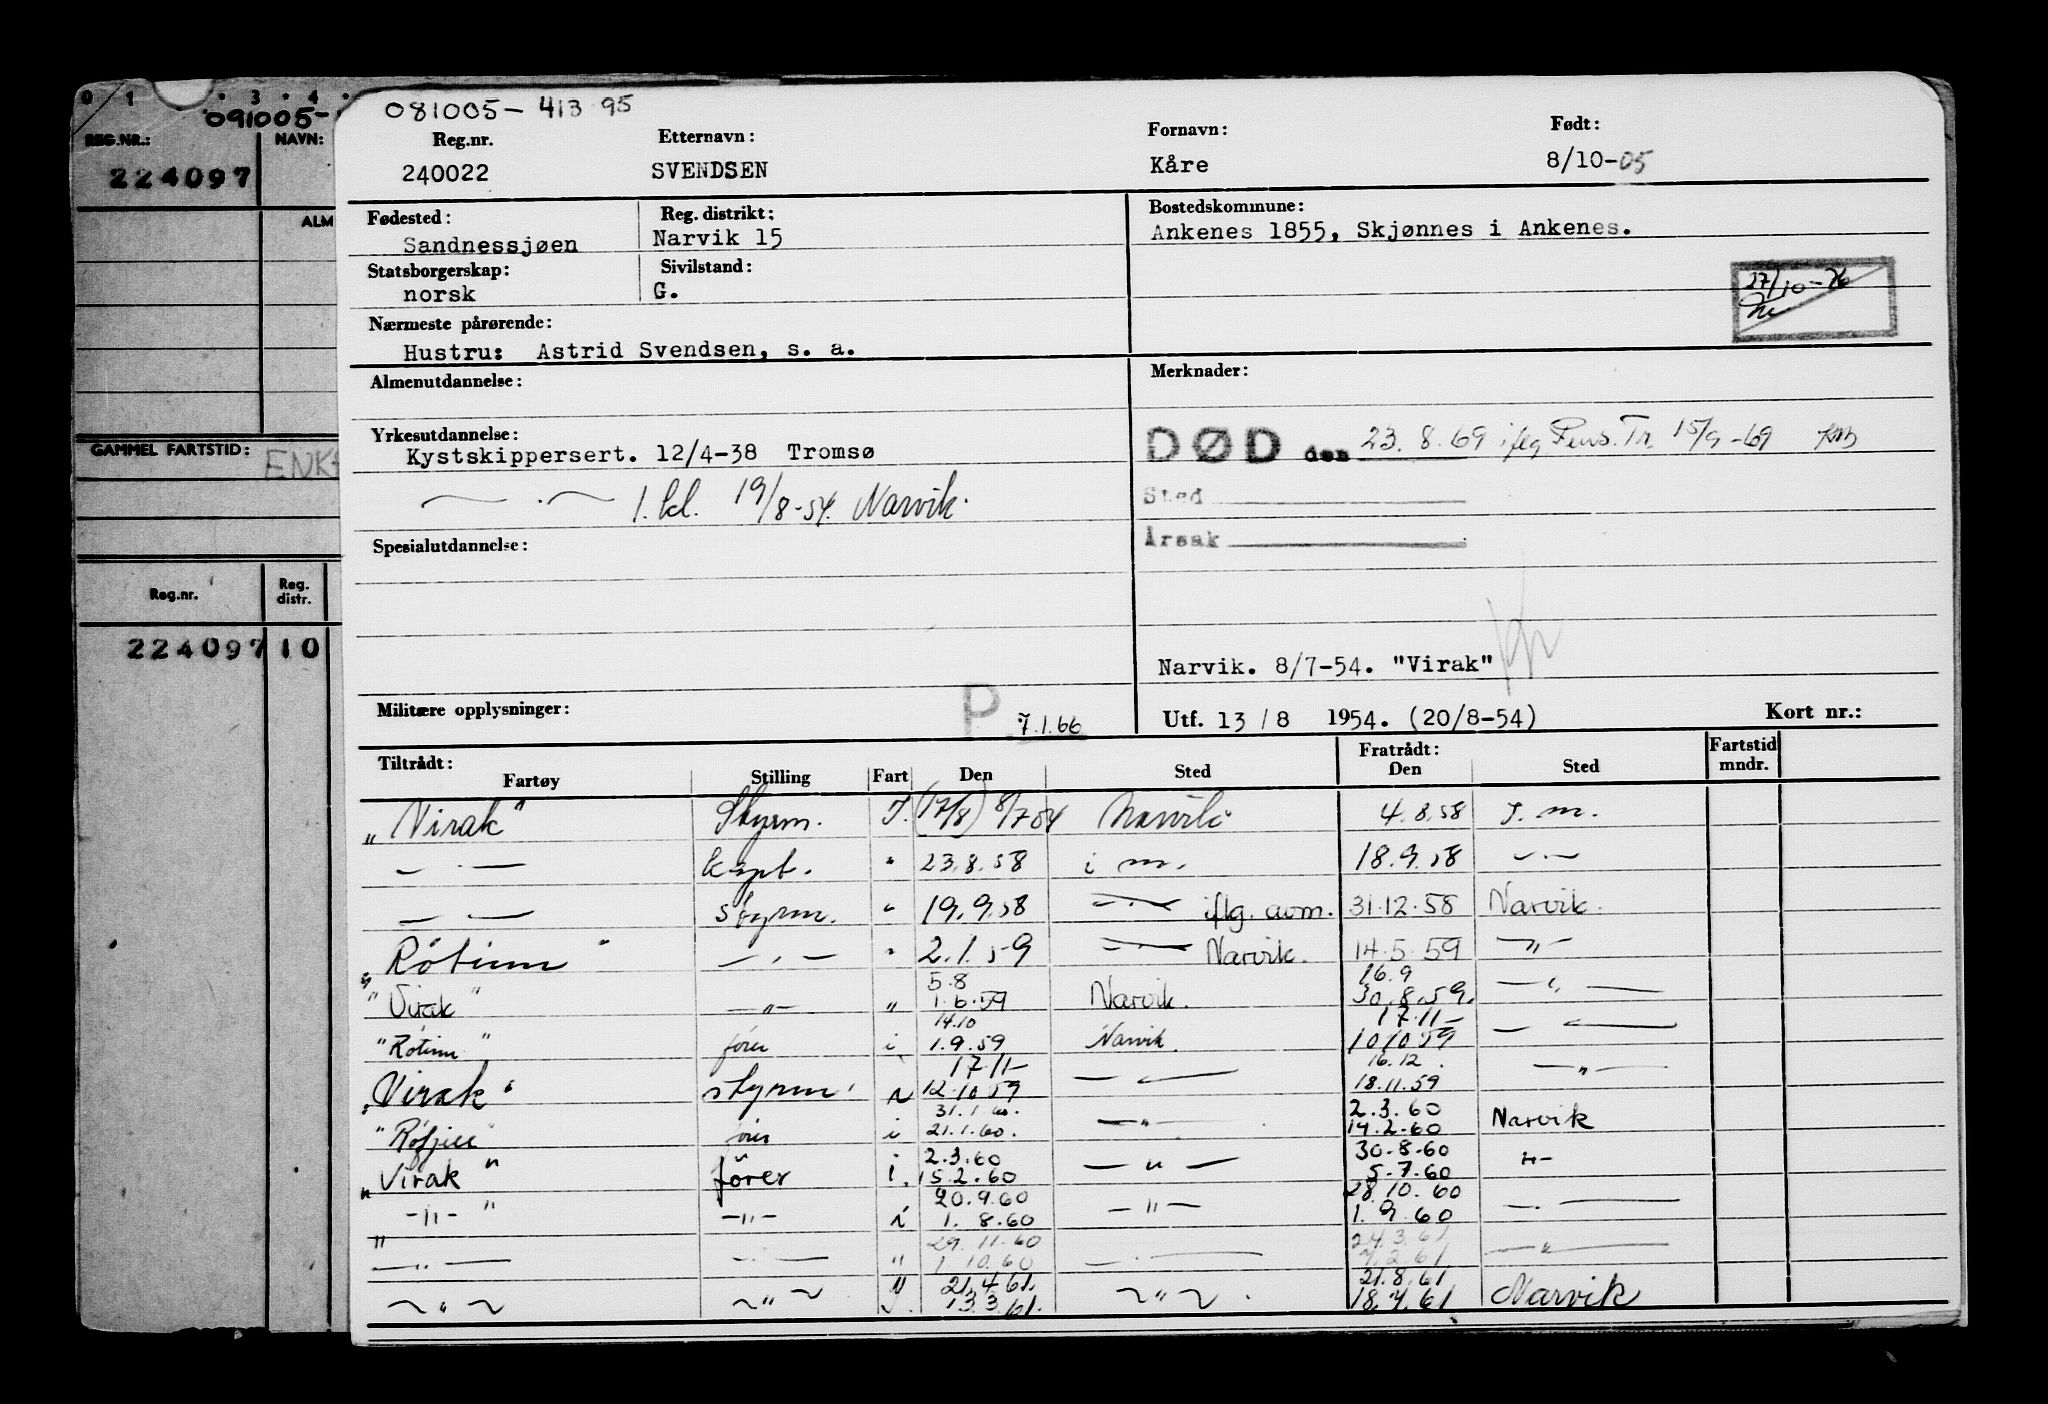 0 1 3 4
091005-
REG.NR.: NAVN:
224097
ALM
GAMMEL FARTSTID:
Reg.nr. Reg. distr.
224097 10
081005-413 95
Reg.nr. Etternavn: Fornavn: Født:
240022 SVENDSEN Kåre 8/10-05
Fødested: Reg. distrikt: Bostedskommune:
Sandnessjøen Narvik 15 Ankenes 1855, Skjønnes i Ankenes.
Statsborgerskap: Sivilstand:
norsk G.
27/10-76
Nærmeste pårørende:
Hustru: Astrid Svendsen, s. a.
Almenutdannelse: Merknader:
Yrkesutdannelse:
Kystskippersert. 12/4-38 Tromsø
DØD den 23.8.69 iflg Pens.Tr. 15/9-69
— . — 1. kl. 19/8-54. Narvik.
Sted
Årsak
Spesialutdannelse:
Narvik. 8/7-54. "Virak"
Militære opplysninger: P 7.1.66
Utf. 13/8 1954. (20/8-54) Kort nr.:
Tiltrådt: Fratrådt: Fartstid mndr.
Fartøy Stilling Fart Den Sted Den Sted
"Virak" Styrm. I. (17/8) 8/7 54 Narvik 4.8.58 I.m.
— . — Kapt. " 23.8.58 i m. 18.9.58 — . —
— . — Styrm. " 19.9.58 — . — iflg. avm. 31.12.58 Narvik.
"Rötinn" — . — " 2.1.59 — . — Narvik. 14.5.59 — " —
5.8 16.9
"Virak" — " — " 1.6.59 Narvik. 30.8.59. — " —
14.10 17.11-
"Rötinn" fører i 1.9.59 Narvik. 10.10.59 — " —
17.11- 16.12.
"Virak" styrm. N 12.10.59 — " — 18.11.59 — " —
31.1.60. 2.3.60
i 21.1.60. — " — 14.2.60 Narvik
2.3.60 30.8.60
"Virak" förer i. 15.2.60 — " — 5.7.60 — " —
20.9.60 28.10.60
— " — — " — i 1.8.60 — " — 1.9.60 — . —
29.11.60 24.3.61
— " — — . — " 1.10.60 — . — 7.2.61 — " —
21.4.61. 21.8.61
— " — — " — " 13.3.61. — " — . 18.4.61 Narvik